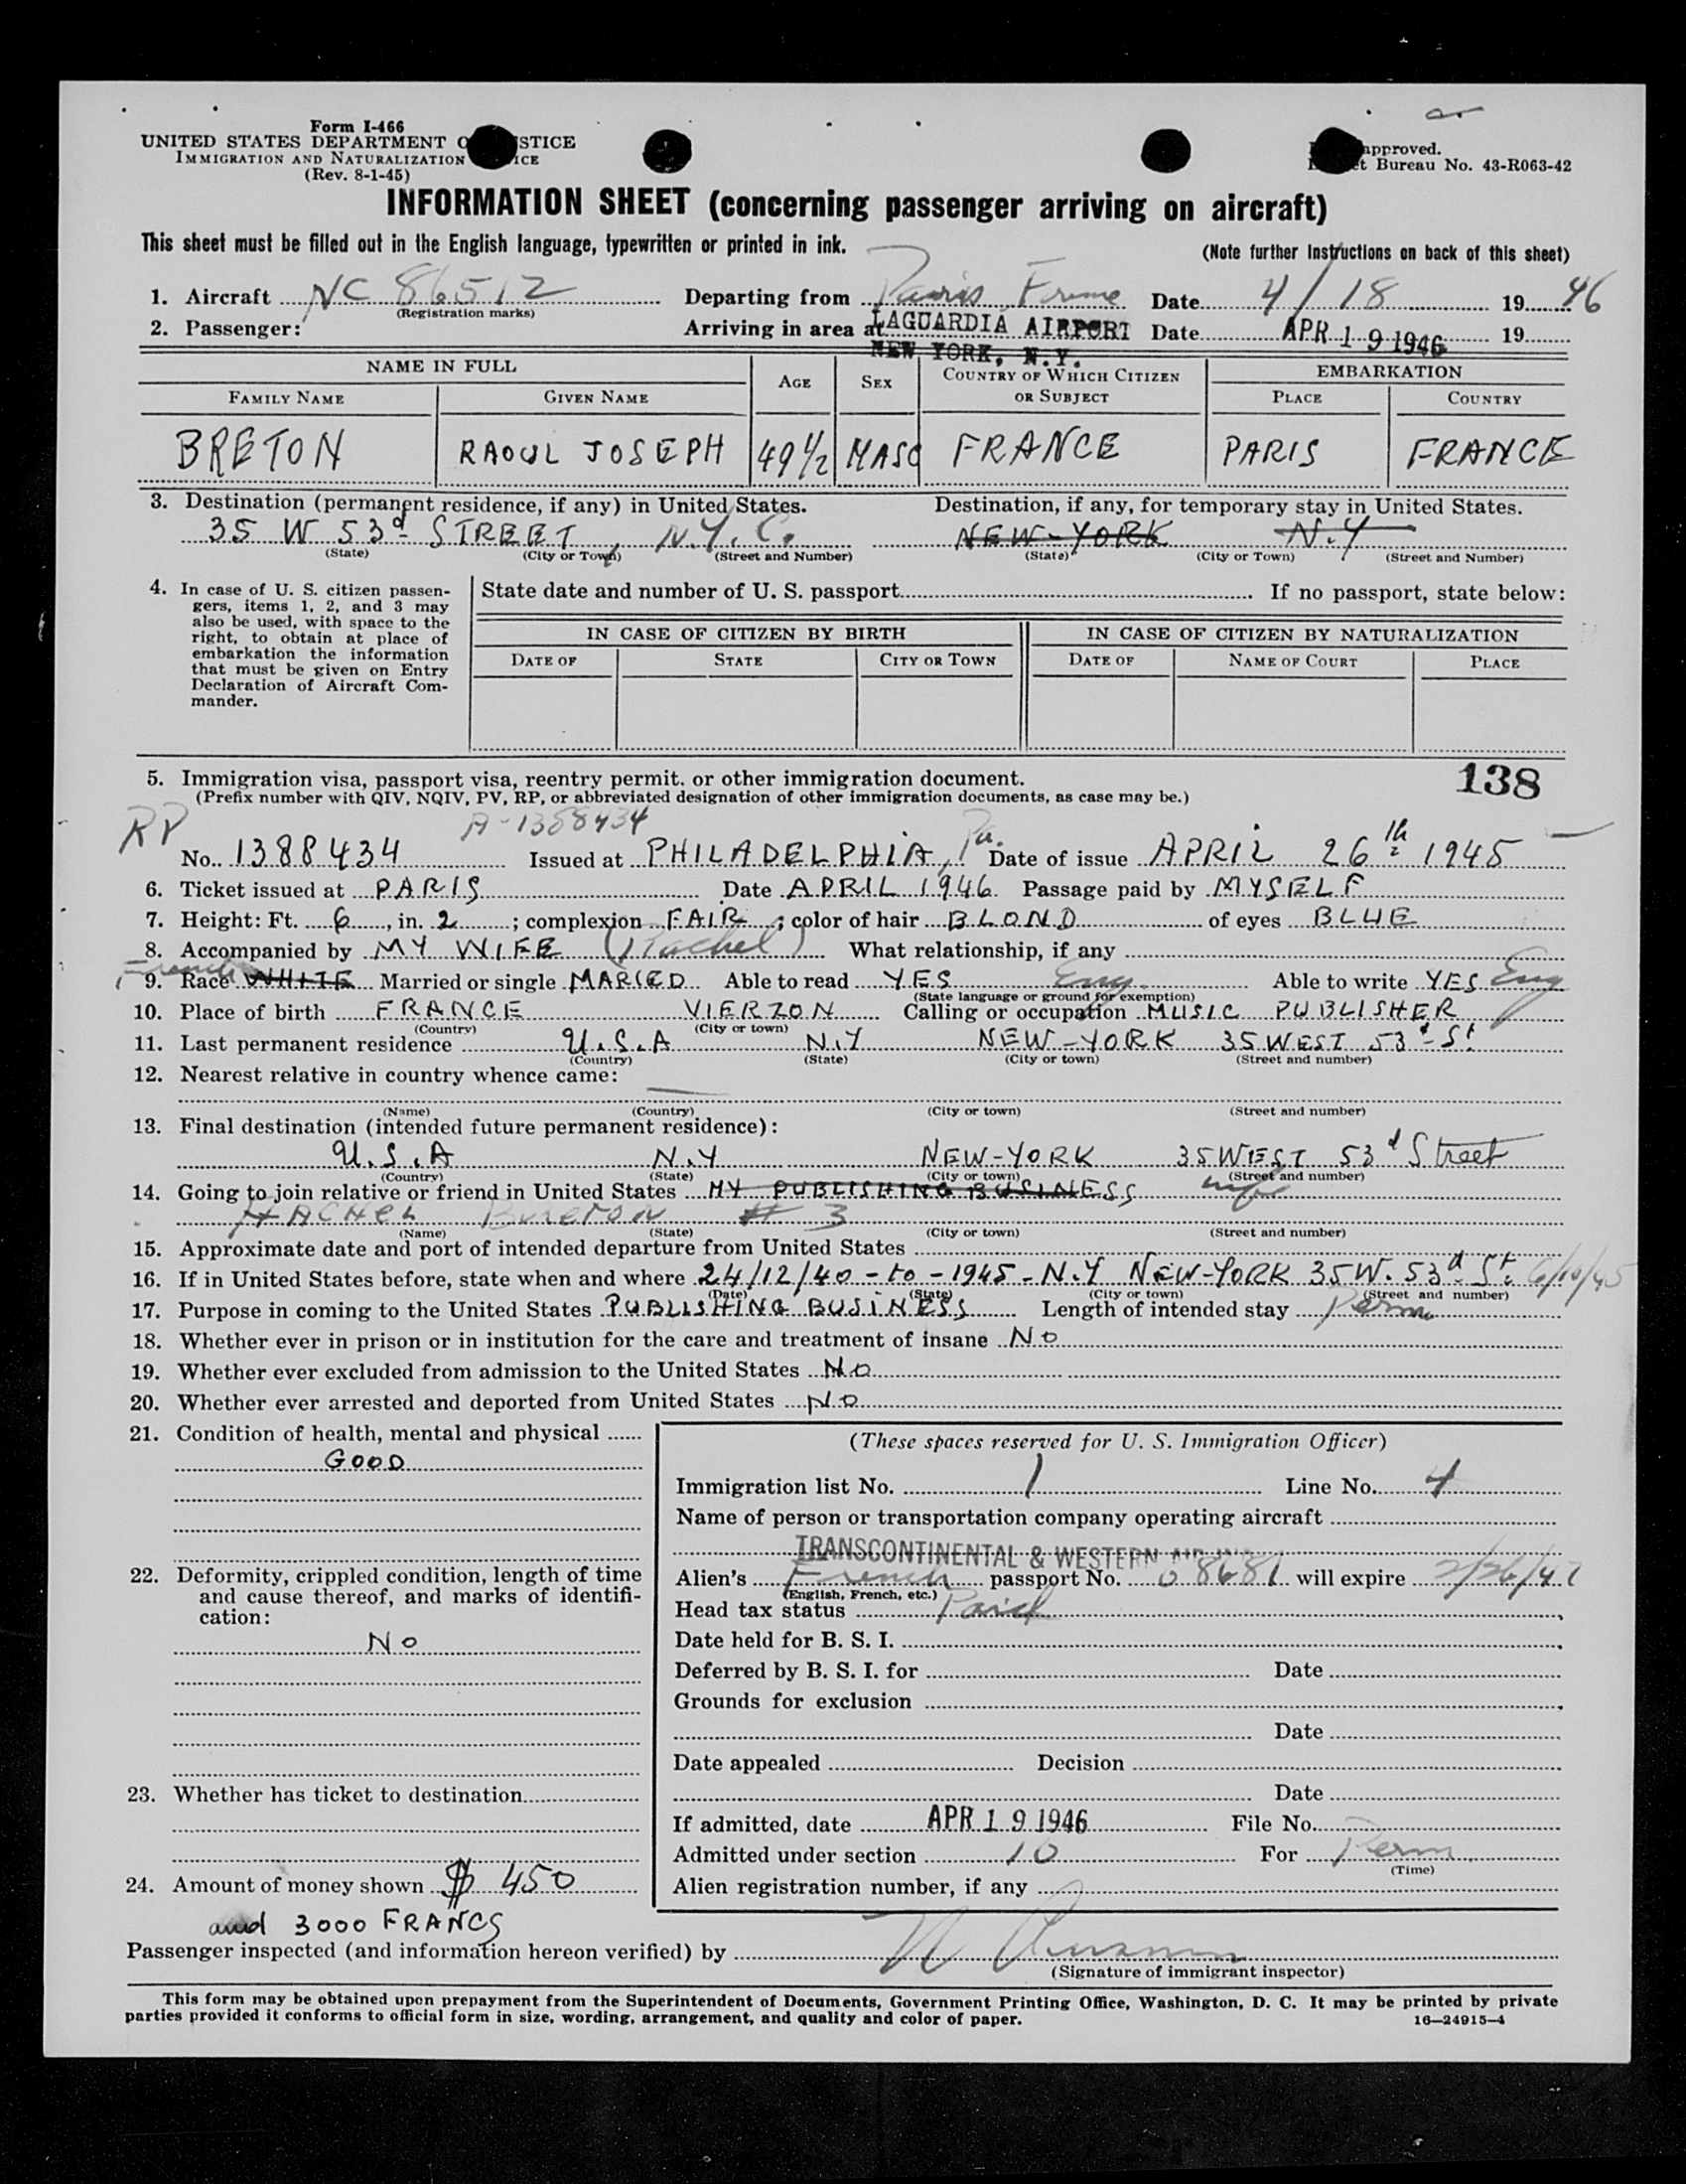 Form I-466
UNITED STATES DEPARTMENT STICE
IMMIGRATION AND NATURALIZATION ICE
(Rev. 8-1-45)
approved.
Bureau No. 43-R063-42
INFORMATION SHEET (concerning passenger arriving on aircraft)
This sheet must be filled out in the English language, typewritten or printed in ink. (Note further Instructions on back of this sheet)
1. Aircraft NC 86512 Departing from Paris Date 4/18 1946
(Registration marks)
2. Passenger: Arriving in area at LAGUARDIA AIRPORT Date APR 19 1946 19
NEW YORK, N.Y.
NAME IN FULL AGE SEX COUNTRY OF WHICH CITIZEN OR SUBJECT EMBARKATION
FAMILY NAME GIVEN NAME PLACE COUNTRY
BRETON RAOUL JOSEPH 49 1/2 MASC FRANCE PARIS FRANCE
3. Destination (permanent residence, if any) in United States. Destination, if any, for temporary stay in United States.
35 W 53d STREET, N.Y.C. NEW-YORK N.Y
(State) (City or Town) (Street and Number) (State) (City or Town) (Street and Number)
4. In case of U. S. citizen passen-
gers, items 1, 2, and 3 may
also be used, with space to the
right, to obtain at place of
embarkation the information
that must be given on Entry
Declaration of Aircraft Com-
mander.
State date and number of U. S. passport If no passport, state below:
IN CASE OF CITIZEN BY BIRTH IN CASE OF CITIZEN BY NATURALIZATION
DATE OF STATE CITY OR TOWN DATE OF NAME OF COURT PLACE
5. Immigration visa, passport visa, reentry permit, or other immigration document. 138
(Prefix number with QIV, NQIV, PV, RP, or abbreviated designation of other immigration documents, as case may be.)
RP A-1388434
No. 1388434 Issued at PHILADELPHIA, Pa. Date of issue APRIL 26th 1945
6. Ticket issued at PARIS Date APRIL 1946 Passage paid by MYSELF
7. Height: Ft. 6, in. 2; complexion FAIR; color of hair BLOND of eyes BLUE
8. Accompanied by MY WIFE (Rachel) What relationship, if any
French
9. Race WHITE Married or single MARIED Able to read YES Eng. Able to write YES Eng
(State language or ground for exemption)
10. Place of birth FRANCE VIERZON Calling or occupation MUSIC PUBLISHER
(Country) (City or town)
11. Last permanent residence U.S.A N.Y NEW-YORK 35 WEST 53d St
(Country) (State) (City or town) (Street and number)
12. Nearest relative in country whence came:
(Name) (Country) (City or town) (Street and number)
13. Final destination (intended future permanent residence):
U.S.A N.Y NEW-YORK 35 WEST 53d Street
(Country) (State) (City or town) (Street and number)
14. Going to join relative or friend in United States MY PUBLISHING BUSINESS wife
# 3
(Name) (State) (City or town) (Street and number)
15. Approximate date and port of intended departure from United States
16. If in United States before, state when and where 24/12/40 - to - 1945 - N.Y NEW-YORK 35 W. 53d St. 6/10/45
(Date) (State) (City or town) (Street and number)
17. Purpose in coming to the United States PUBLISHING BUSINESS Length of intended stay Perm
18. Whether ever in prison or in institution for the care and treatment of insane No
19. Whether ever excluded from admission to the United States No
20. Whether ever arrested and deported from United States No
21. Condition of health, mental and physical
GOOD
22. Deformity, crippled condition, length of time
and cause thereof, and marks of identifi-
cation:
No
23. Whether has ticket to destination
24. Amount of money shown $ 450
and 3000 FRANCS
(These spaces reserved for U. S. Immigration Officer)
Immigration list No. 1 Line No. 4
Name of person or transportation company operating aircraft
TRANSCONTINENTAL & WESTERN
Alien's French passport No. 08681 will expire 2/26/47
(English, French, etc.)
Head tax status Paid
Date held for B. S. I.
Deferred by B. S. I. for Date
Grounds for exclusion
Date
Date appealed Decision
Date
If admitted, date APR 19 1946 File No.
Admitted under section 10 For Perm
(Time)
Alien registration number, if any
Passenger inspected (and information hereon verified) by
(Signature of immigrant inspector)
This form may be obtained upon prepayment from the Superintendent of Documents, Government Printing Office, Washington, D. C. It may be printed by private
parties provided it conforms to official form in size, wording, arrangement, and quality and color of paper. 16—24915-4